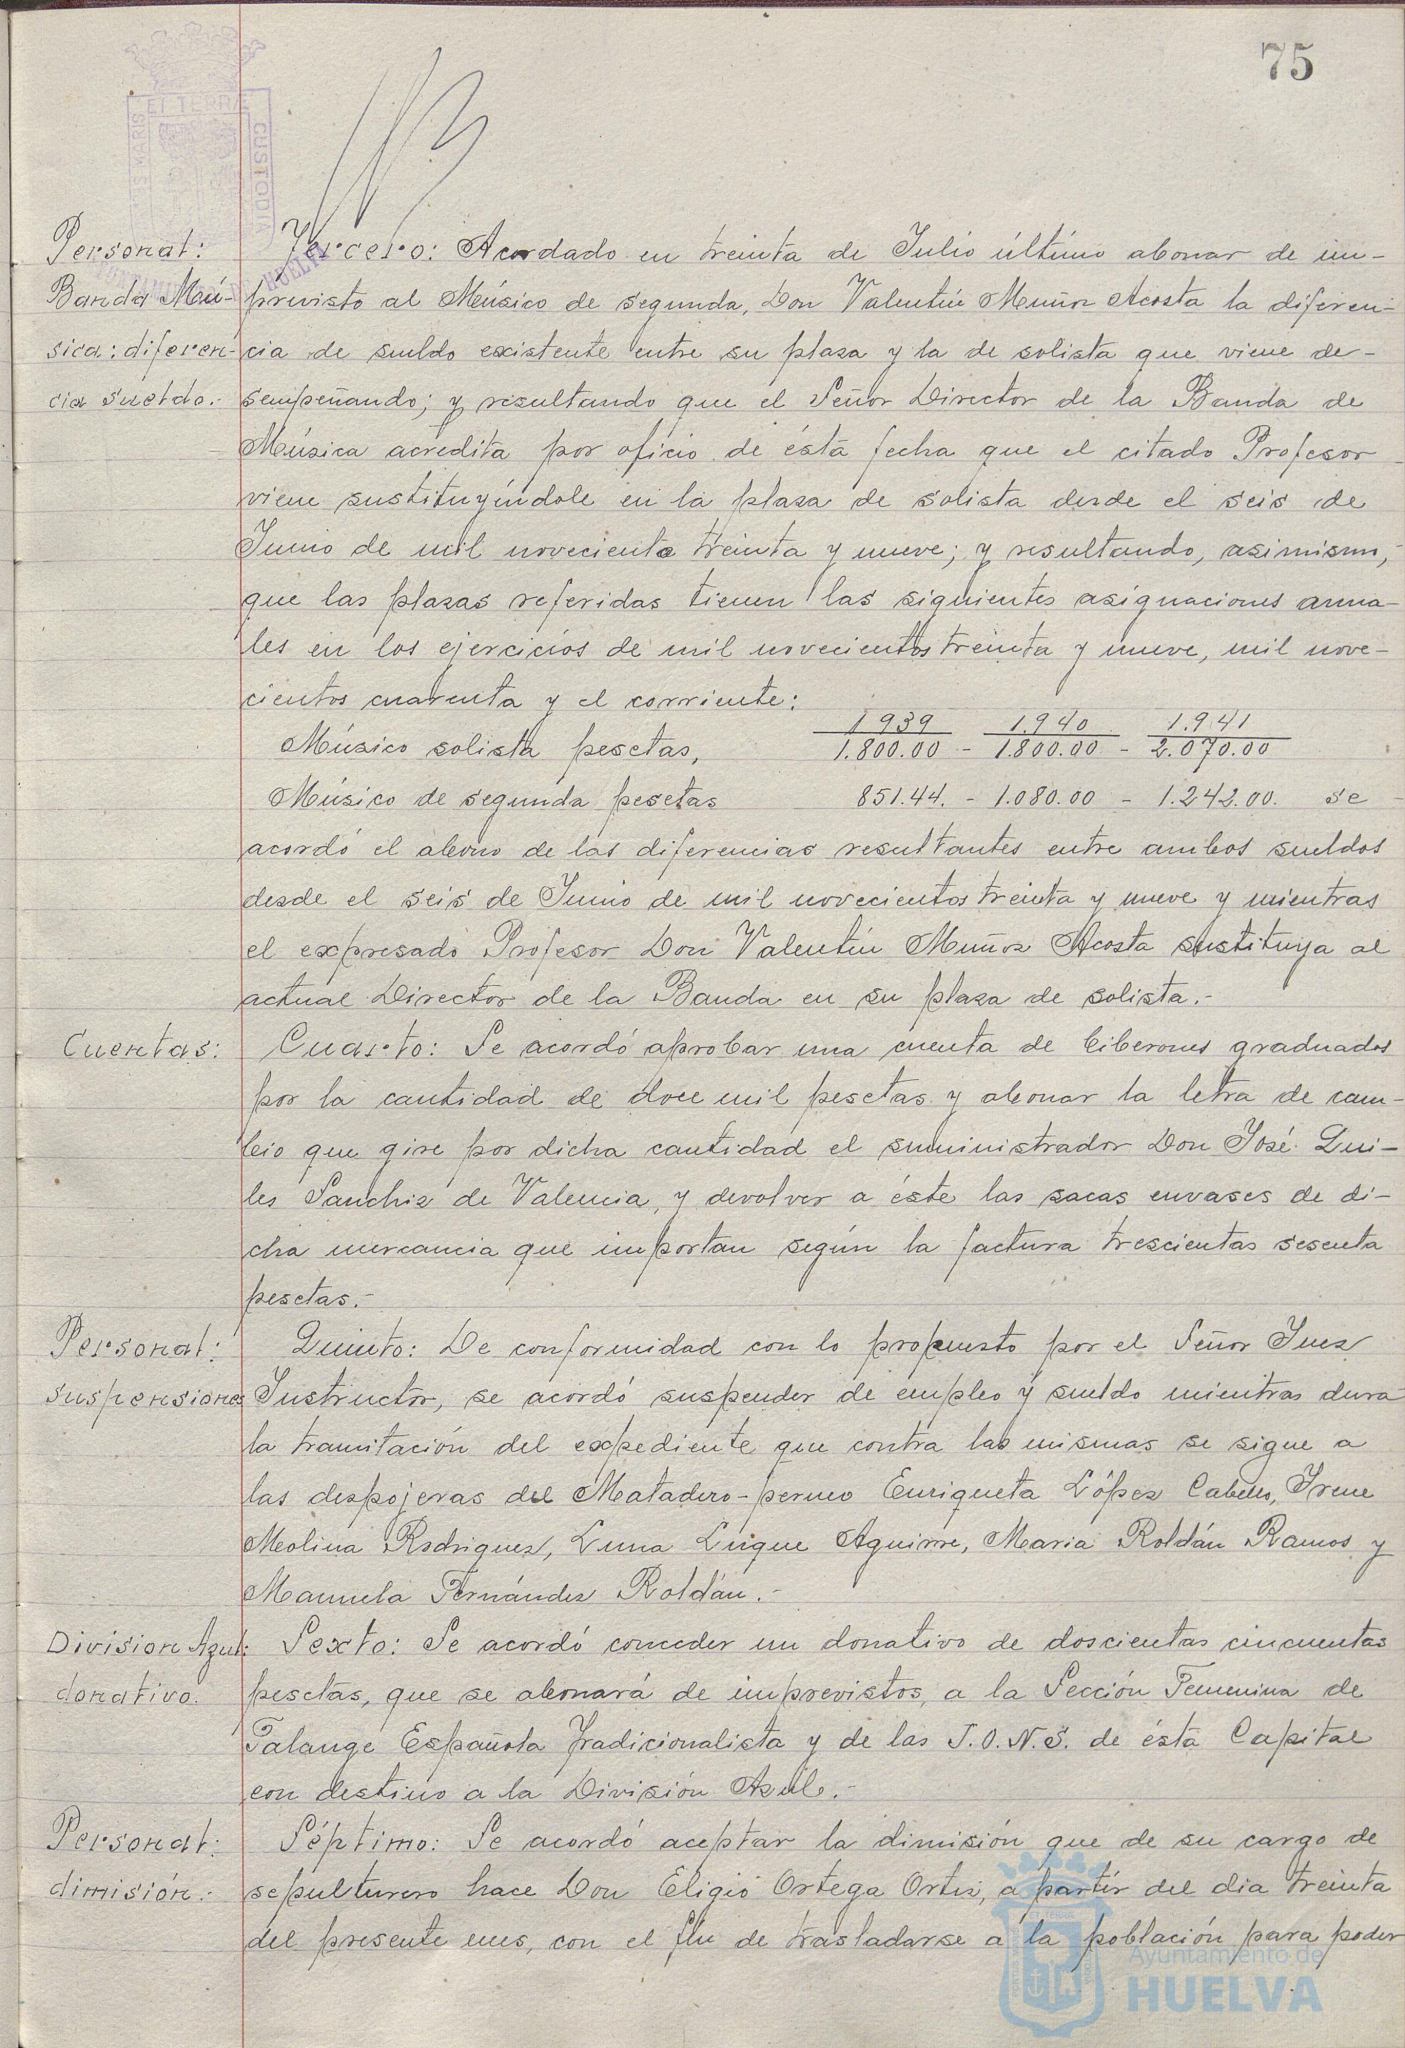 75
Personal:
Banda Mú-
sica: diferen-
cia sueldo.-
Tercero: Acordado en treinta de Julio último abonar de im-
previsto al Músico de segunda, Don Valentín Muñoz Acosta la diferen-
cia de sueldo existente entre su plaza y la de solista que viene de-
sempeñando; y resultando que el Señor Director de la Banda de
Música acredita por oficio de ésta fecha que el citado Profesor
viene sustituyéndole en la plaza de solista desde el seis de
Junio de mil novecientos treinta y nueve; y resultando, asimismo,
que las plazas referidas tienen las siguientes asignaciones anua-
les en los ejercicios de mil novecientos treinta y nueve, mil nove-
cientos cuarenta y el corriente:
1939 1.940 1.941
Músico solista pesetas, 1.800.00 - 1.800.00 - 2.070.00
Músico de segunda pesetas 851.44. - 1.080.00 - 1.242.00. se
acordó el abono de las diferencias resultantes entre ambos sueldos
desde el seis de Junio de mil novecientos treinta y nueve y mientras
el expresado Profesor Don Valentín Muñoz Acosta sustituya al
actual Director de la Banda en su plaza de solista.-
Cuentas:
Cuarto: Se acordó aprobar una cuenta de biberones graduados
por la cantidad de doce mil pesetas y abonar la letra de cam-
bio que gire por dicha cantidad el suministrador Don José Qui-
les Sanchiz de Valencia, y devolver a éste las sacas envases de di-
cha mercancia que importan según la factura trescientas sesenta
pesetas.-
Personal:
suspensiones
Quinto: De conformidad con lo propuesto por el Señor Juez
Instructor, se acordó suspender de empleo y sueldo mientras dura
la tramitación del expediente que contra las mismas se sigue a
las despojeras del Matadero-perneo Enriqueta López Cabello, Irene
Molina Rodriguez, Luna Luque Aguirre, Maria Roldán Ramos y
Manuela Fernández Roldán.-
Division Azul:
donativo.
Sexto: Se acordó conceder un donativo de doscientas cincuentas
pesetas, que se abonará de imprevistos, a la Sección Femenina de
Falange Española Tradicionalista y de las J.O.N.S. de ésta Capital
con destino a la División Azul.-
Personal:
dimisión.-
Séptimo: Se acordó aceptar la dimisión que de su cargo de
sepulturero hace Don Eligio Ortega Ortiz, a partir del dia treinta
del presente mes, con el fin de trasladarse a la población para poder
Ayuntamiento de
HUELVA